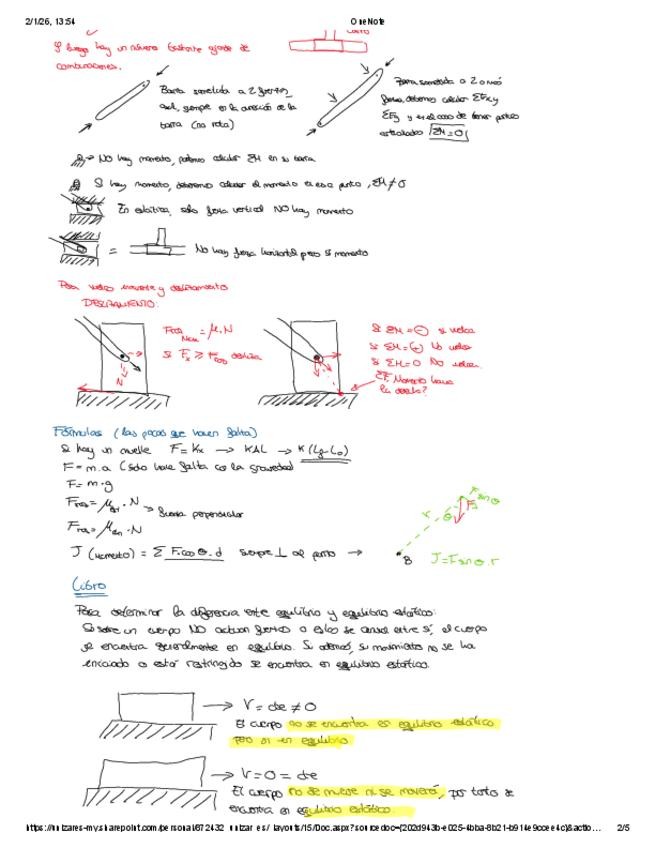 2/1/26, 13:54
OneNote
Y luego hay un número bastante grande de
combinaciones.
Barra sometida a 2 fuerzas
axil, siempre en la dirección de la
barra (no rota)
Barra sometida a 2 o más
fuerzas, debemos calcular ΣFx y
ΣFy y en el caso de tener puntos
articulados ΣM=0
→ NO hay momento, podemos calcular ΣM en su barra
Si hay momento, deberemos calcular el momento en ese punto, ΣM≠0
En estática, solo fuerza vertical NO hay momento
= No hay fuerza horizontal pero si momento
Para vuelco inminente y deslizamiento
DESLIZAMIENTO:
= μ·N
N
Si Fx ≥ Froz desliza
Si ΣM=⊖ si vuelca
Si ΣM=⊕ No vuelca
Si ΣM=0 No vuelca.
Momento hacia
Fórmulas (las pocas que hacen falta)
Si hay un muelle F=Kx → KΔL → K(Lf-L0)
F=m.a (solo hace falta con la gravedad)
F=m·g
Froz= · N → Fuerza perpendicular
Froz= · N
J (momento) = Σ F.cos θ.d siempre ⊥ al punto →
r
θ
F
F sen θ
B
J=F sen θ.r
Libro
Para determinar la diferencia entre equilibrio y equilibrio estático:
Si sobre un cuerpo NO actúan fuerzas o estas se anulan entre sí, el cuerpo
se encuentra generalmente en equilibrio. Si además, su movimiento no se ha
iniciado o está restringido se encuentra en equilibrio estático.
→ V = cte ≠ 0
El cuerpo no se encuentra en equilibrio estático
pero sí en equilibrio.
→ V=0=cte
El cuerpo no se mueve ni se moverá, por tanto se
encuentra en equilibrio estático.
2/5